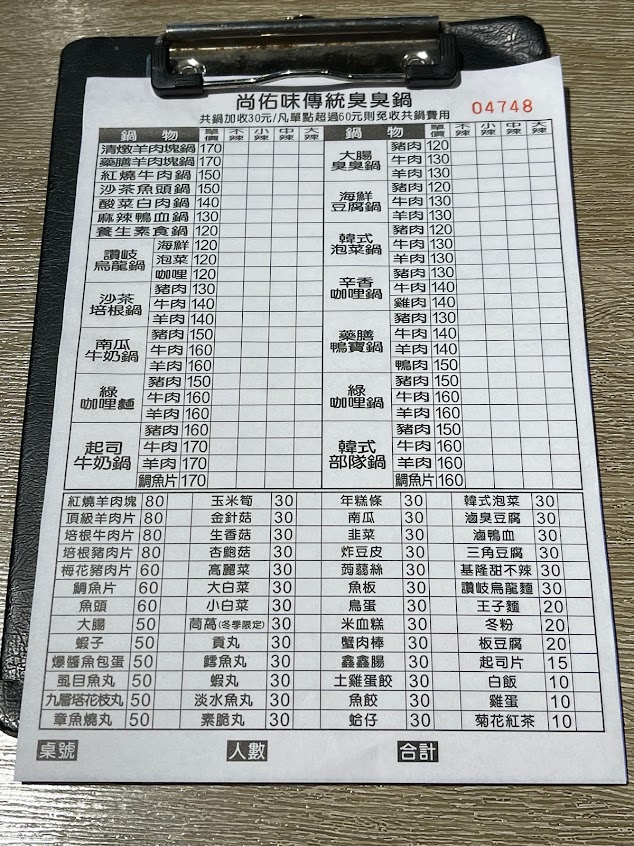 尚佑味傳統臭臭鍋
04748
共鍋加收30元/凡單點超過60元則免收共鍋費用
鍋 物 單價 不辣 小辣 中辣 大辣
清燉羊肉塊鍋 170
藥膳羊肉塊鍋 170
紅燒牛肉鍋 150
沙茶魚頭鍋 150
酸菜白肉鍋 140
麻辣鴨血鍋 130
養生素食鍋 120
讚岐烏龍鍋 海鮮 120
泡菜 120
咖哩 120
沙茶培根鍋 豬肉 130
牛肉 140
羊肉 140
南瓜牛奶鍋 豬肉 150
牛肉 160
羊肉 160
綠咖哩麵 豬肉 150
牛肉 160
羊肉 160
起司牛奶鍋 豬肉 160
牛肉 170
羊肉 170
鯛魚片 170
鍋 物 單價 不辣 小辣 中辣 大辣
大腸臭臭鍋 豬肉 120
牛肉 130
羊肉 130
海鮮豆腐鍋 豬肉 120
牛肉 130
羊肉 130
韓式泡菜鍋 豬肉 120
牛肉 130
羊肉 130
辛香咖哩鍋 豬肉 130
牛肉 140
雞肉 140
藥膳鴨寶鍋 豬肉 130
牛肉 140
羊肉 140
鴨肉 150
綠咖哩鍋 豬肉 150
牛肉 160
羊肉 160
韓式部隊鍋 豬肉 150
牛肉 160
羊肉 160
鯛魚片 160
紅燒羊肉塊 80 玉米筍 30 年糕條 30 韓式泡菜 30
頂級羊肉片 80 金針菇 30 南瓜 30 滷臭豆腐 30
培根牛肉片 80 生香菇 30 韭菜 30 滷鴨血 30
培根豬肉片 80 杏鮑菇 30 炸豆皮 30 三角豆腐 30
梅花豬肉片 60 高麗菜 30 蒟蒻絲 30 基隆甜不辣 30
鯛魚片 60 大白菜 30 魚板 30 讚岐烏龍麵 30
魚頭 60 小白菜 30 鳥蛋 30 王子麵 20
大腸 50 茼萵(冬季限定) 30 米血糕 30 冬粉 20
蝦子 50 貢丸 30 蟹肉棒 30 板豆腐 20
爆醬魚包蛋 50 鱈魚丸 30 鑫鑫腸 30 起司片 15
虱目魚丸 50 蝦丸 30 土雞蛋餃 30 白飯 10
九層塔花枝丸 50 淡水魚丸 30 魚餃 30 雞蛋 10
章魚燒丸 50 素脆丸 30 蛤仔 30 菊花紅茶 10
桌號 人數 合計